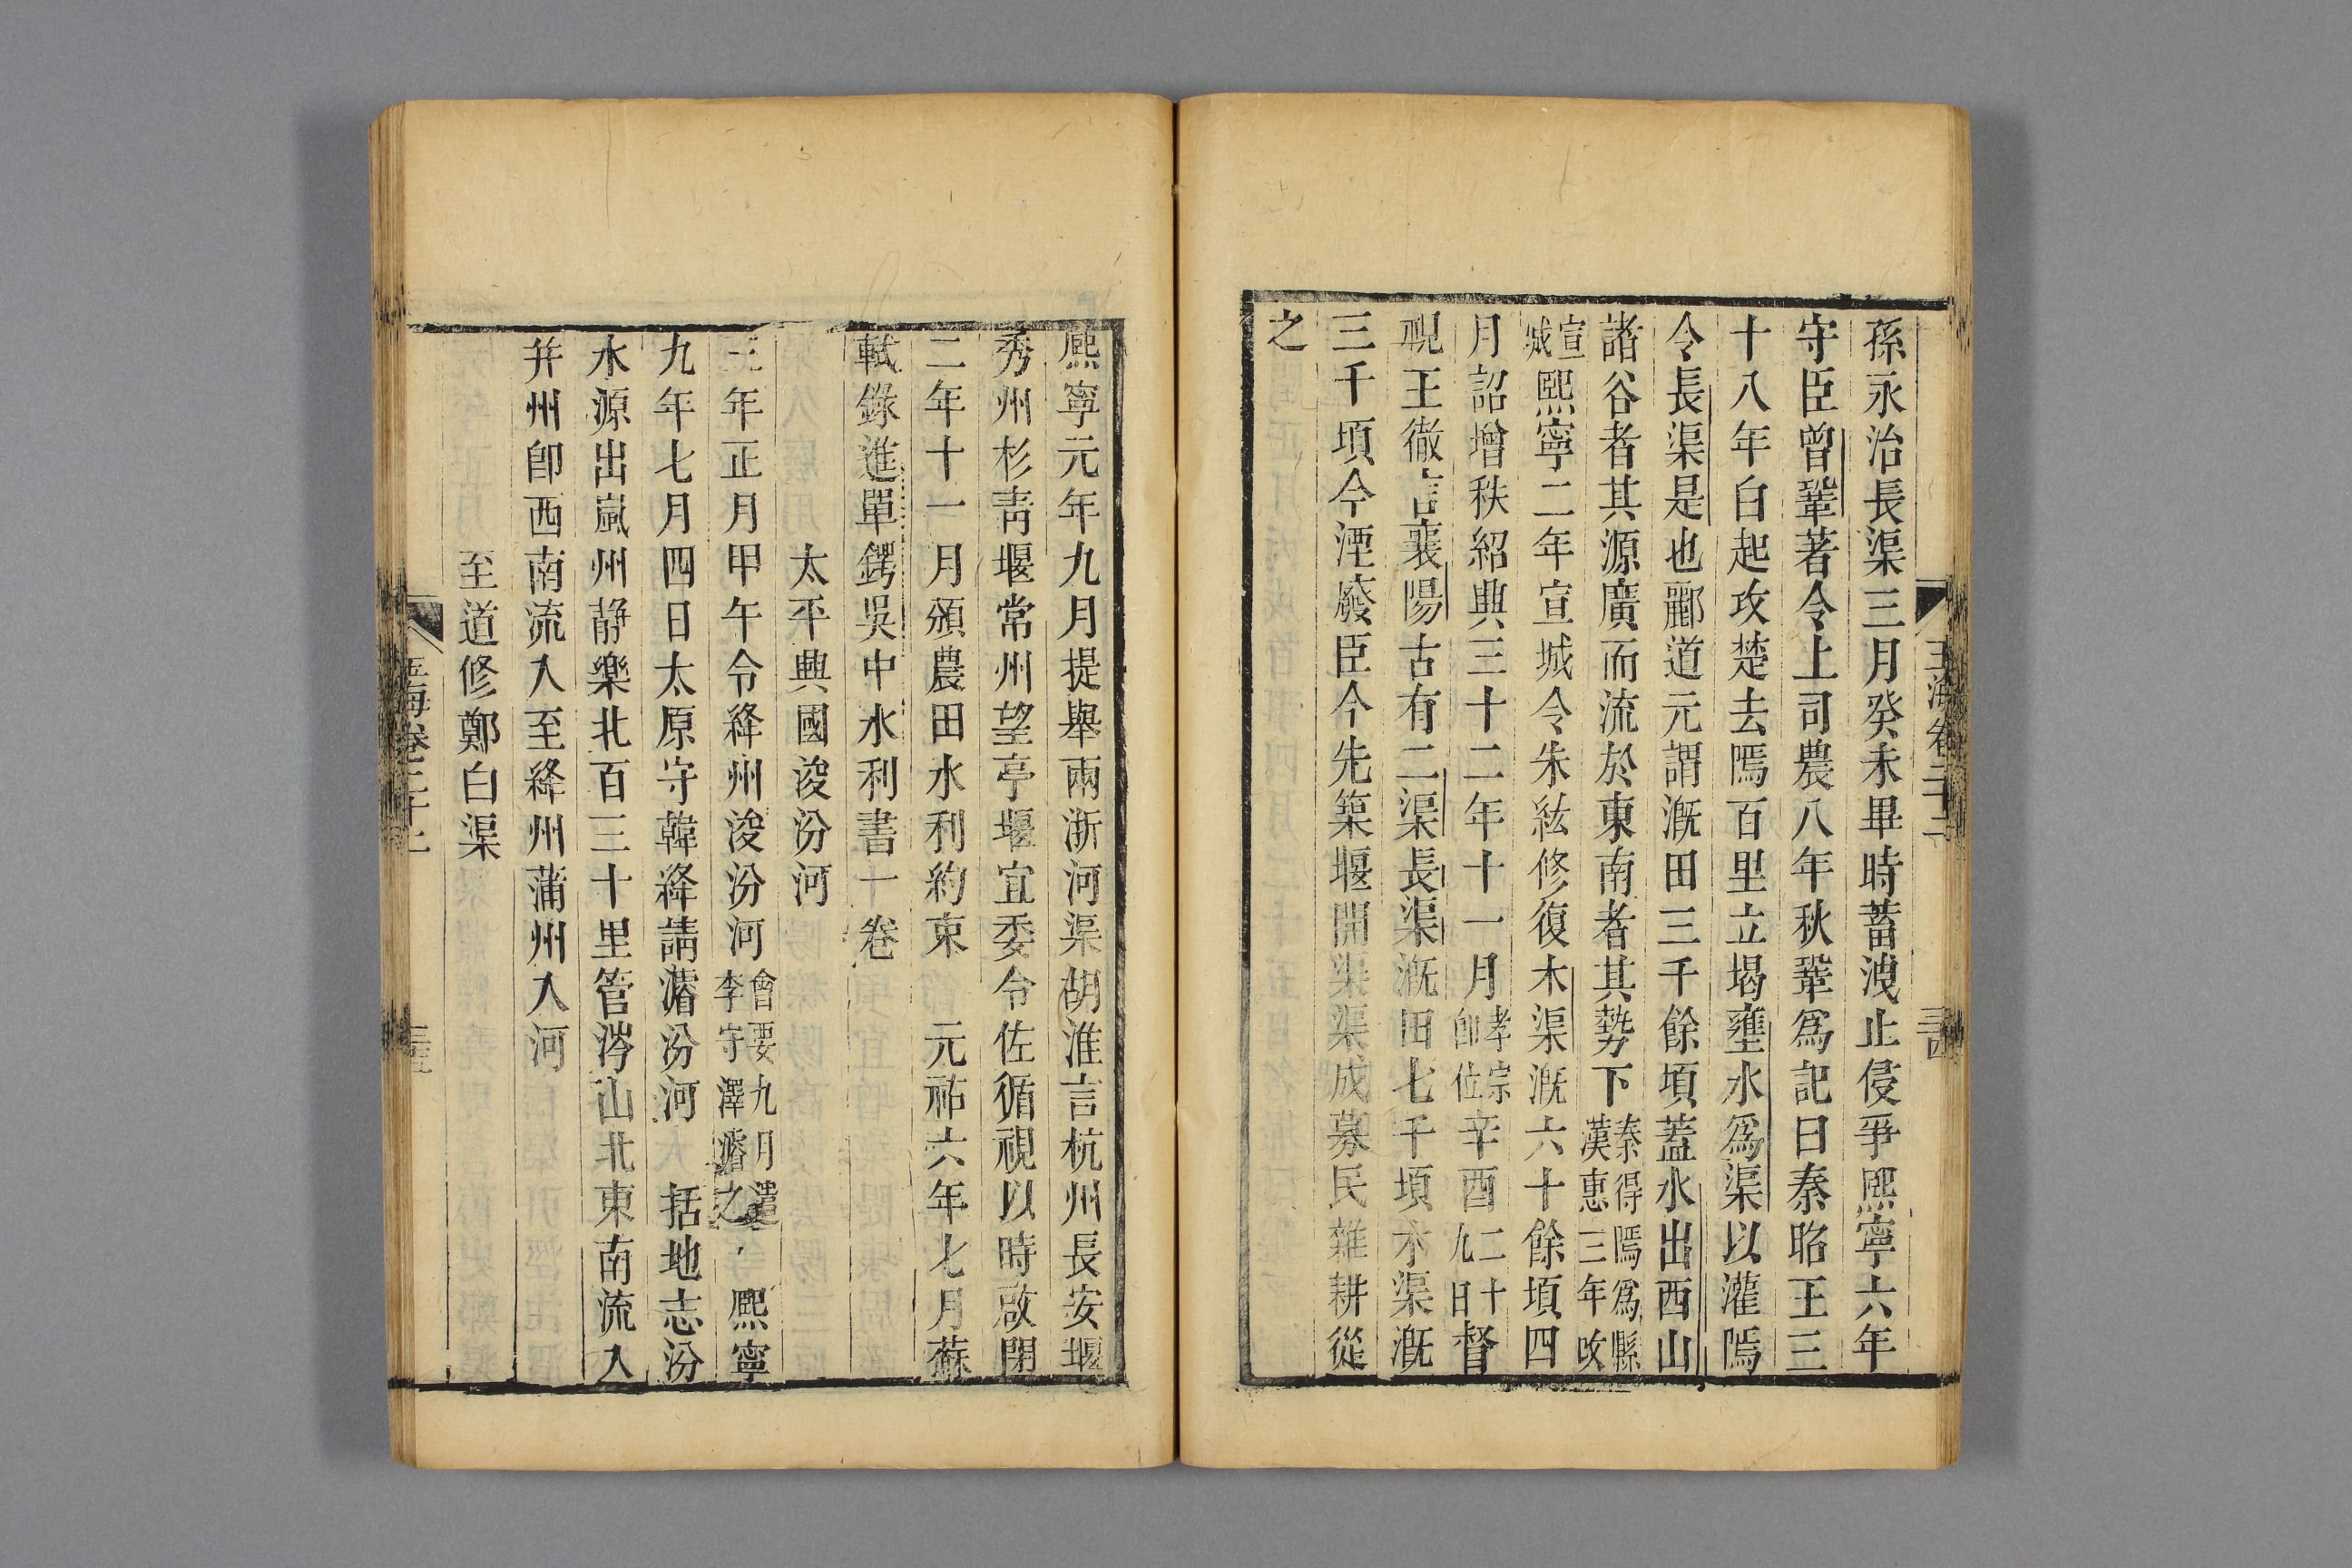 孫永治長渠三月癸未畢時蓄洩止侵爭熙寧六年
守臣曾鞏著令上司農八年秋鞏爲記曰秦昭王三
十八年白起攻楚去鄢百里立堨壅水爲渠以灌鄢
令長渠是也酈道元謂漑田三千餘頃蓋水出西山
諸谷者其源廣而流於東南者其勢下秦得鄢爲縣漢惠三年改
宣城熙寧二年宣城令朱紘修復木渠漑六十餘頃四
月詔增秩紹興三十二年十一月孝宗卽位辛酉二十九日督
視王徹言襄陽古有二渠長渠漑田七千頃木渠漑
三千頃今湮廢臣今先築堰開渠渠成募民雜耕從
之
玉海卷二十二
熙寧元年九月提舉兩浙河渠胡淮言杭州長安堰
秀州杉靑堰常州望亭堰宜委令佐循視以時啟閉
二年十一月頒農田水利約束 元祐六年七月蘇
軾錄進單鍔吳中水利書一卷
太平興國浚汾河
三年正月甲午令絳州浚汾河會要九月遣李守澤濬之 熙寧
九年七月四日太原守韓絳請濬汾河 括地志汾
水源出嵐州靜樂北百三十里管涔山北東南流入
幷州卽西南流入至絳州蒲州入河
至道修鄭白渠